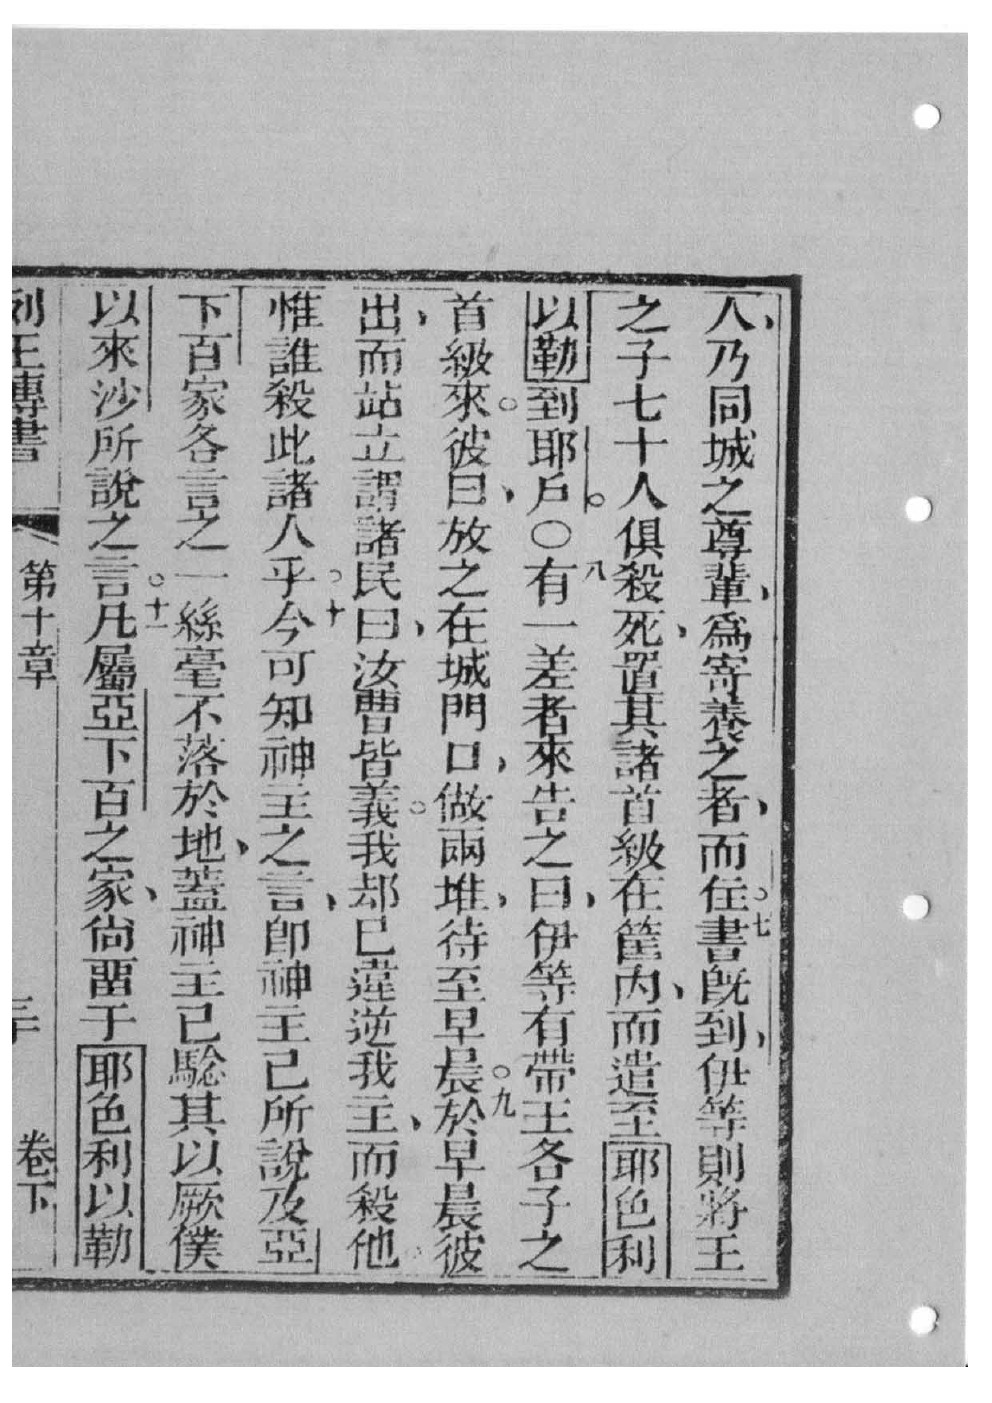 人、乃同城之尊輩、爲寄養之者、而住。七書既到、伊等則將王
之子七十人俱殺死、置其諸首級在筐內、而遣至耶色利
以勒到耶戶。〇八有一差者來告之曰、伊等有帶王各子之
首級來。彼曰、放之在城門口、做兩堆、待至早晨。九於早晨彼
出、而站立謂諸民曰、汝曹皆義。我却已違逆我主、而殺他。
惟誰殺此諸人乎。十今可知神主之言、卽神主已所說及亞
下百家各言之一絲毫不落於地、蓋神主已騐其以厥僕
以來沙所說之言。十一凡屬亞下百之家、尙畱于耶色利以勒
列王傳書 第十章 二十 卷下